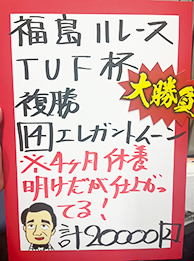 福島11レース
TUF杯
複勝
14 エレガントムーン
※4ヶ月休養
明けだが仕上がっ
てる!
計20000円
大勝負